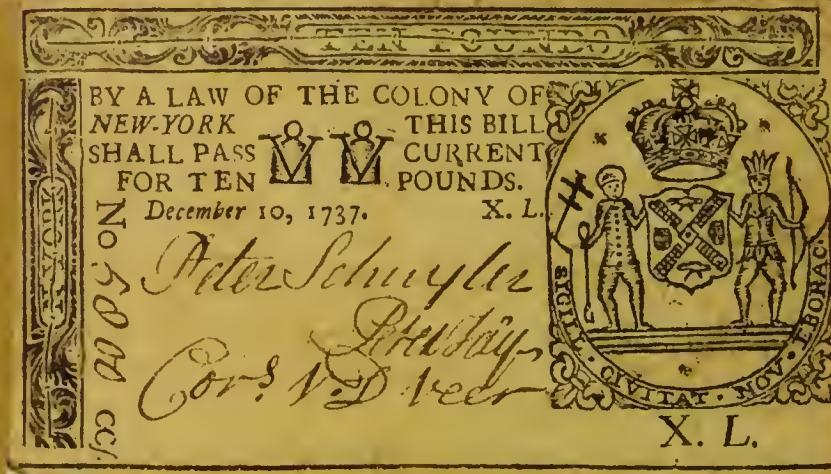 TEN POUNDS
BY A LAW OF THE COLONY OF
NEW-YORK THIS BILL
SHALL PASS CURRENT
FOR TEN POUNDS.
December 10, 1737. X. L.
Peter Schuyler
Peter Jay
Cors. V. D Veer
N. YORK
No
SIGILL · CIVITAT · NOV · EBORAC ·
X. L.